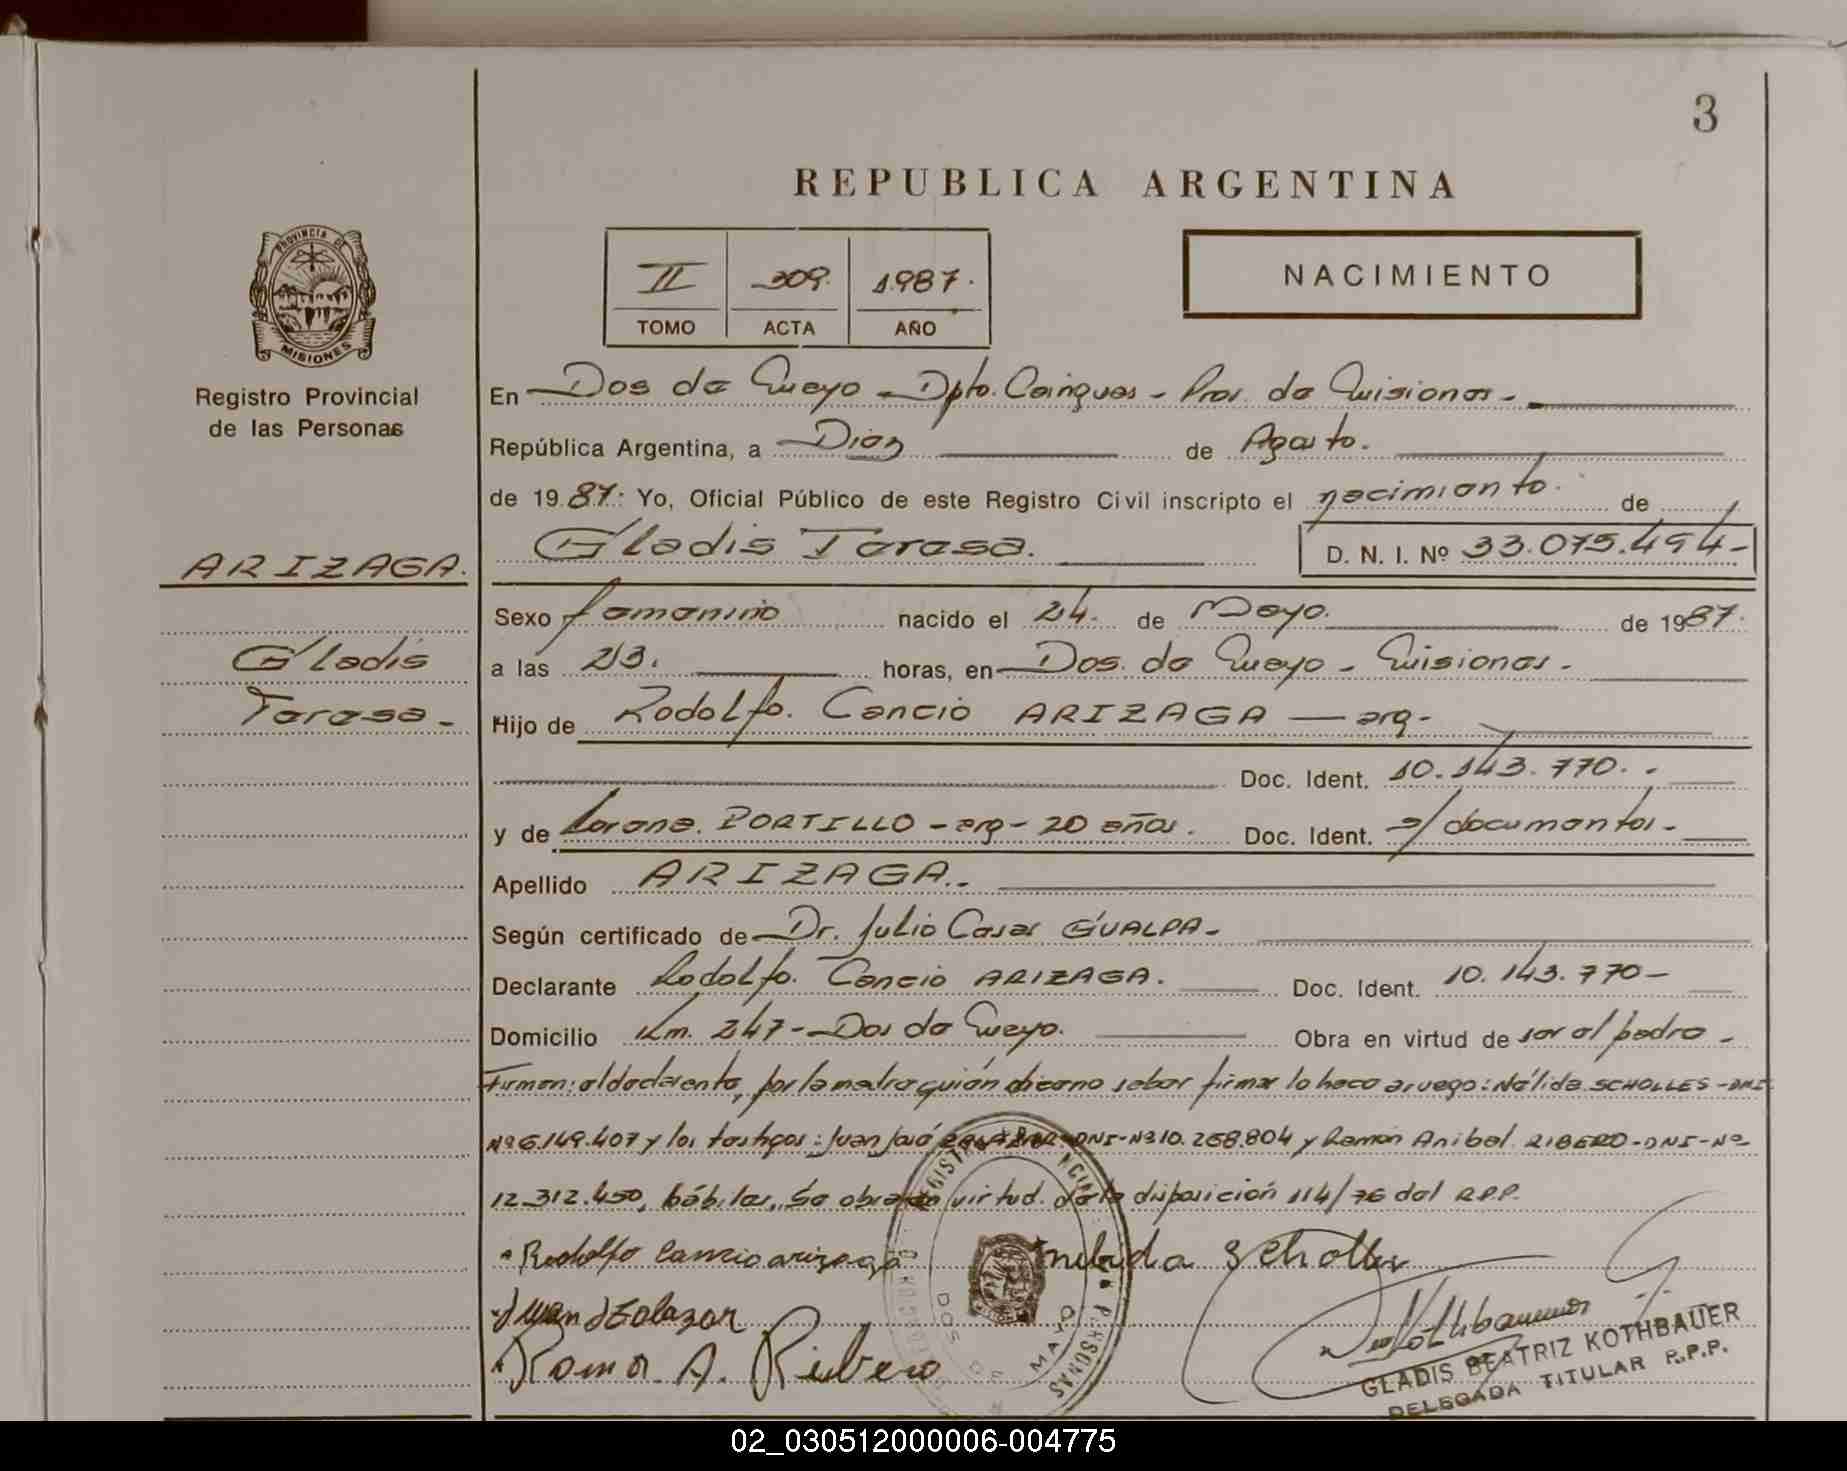 3
REPUBLICA ARGENTINA
PROVINCIA DE
MISIONES
Registro Provincial
de las Personas
II 309. 1.987.
TOMO ACTA AÑO
NACIMIENTO
En Dos de Mayo - Dpto. Cainguas - Prov. de Misiones -
República Argentina, a Diez de Agosto.
de 19 87: Yo, Oficial Público de este Registro Civil inscripto el nacimiento. de
Gladis Teresa. D. N. I. Nº 33.075.494-
ARIZAGA.
Gladis
Teresa -
Sexo femenino nacido el 24. de Mayo. de 1987.
a las 23. horas, en Dos. de Mayo - Misiones -
Hijo de Rodolfo. Cancio ARIZAGA - arg-
Doc. Ident. 10.143.770. -
y de Lorena. PORTILLO - arg - 20 años. Doc. Ident. s/documentos -
Apellido ARIZAGA.-
Según certificado de Dr. Julio Cesar GUALPA -
Declarante Rodolfo. Cancio ARIZAGA. Doc. Ident. 10.143.770-
Domicilio Km. 247 - Dos de Mayo. Obra en virtud de ser el padre -
Firman: el declarante, por la madre quién dice no saber firmar lo hace a ruego: Nélida SCHOLLES - DNI
Nº 6.149.407 y los testigos: Juan José SALAZAR-DNI-Nº 10.268.804 y Ramón Anibal RIBERO - DNI - Nº
12.312.450, hábiles. Se obra en virtud. de la disposición 114/76 del R.P.P.
Rodolfo Cancio arizaga nelida Scholles
Juan J Salazar
Ramon A. Ribero
DOS DE MAYO
GLADIS BEATRIZ KOTHBAUER
DELEGADA TITULAR R.P.P.
02_030512000006-004775